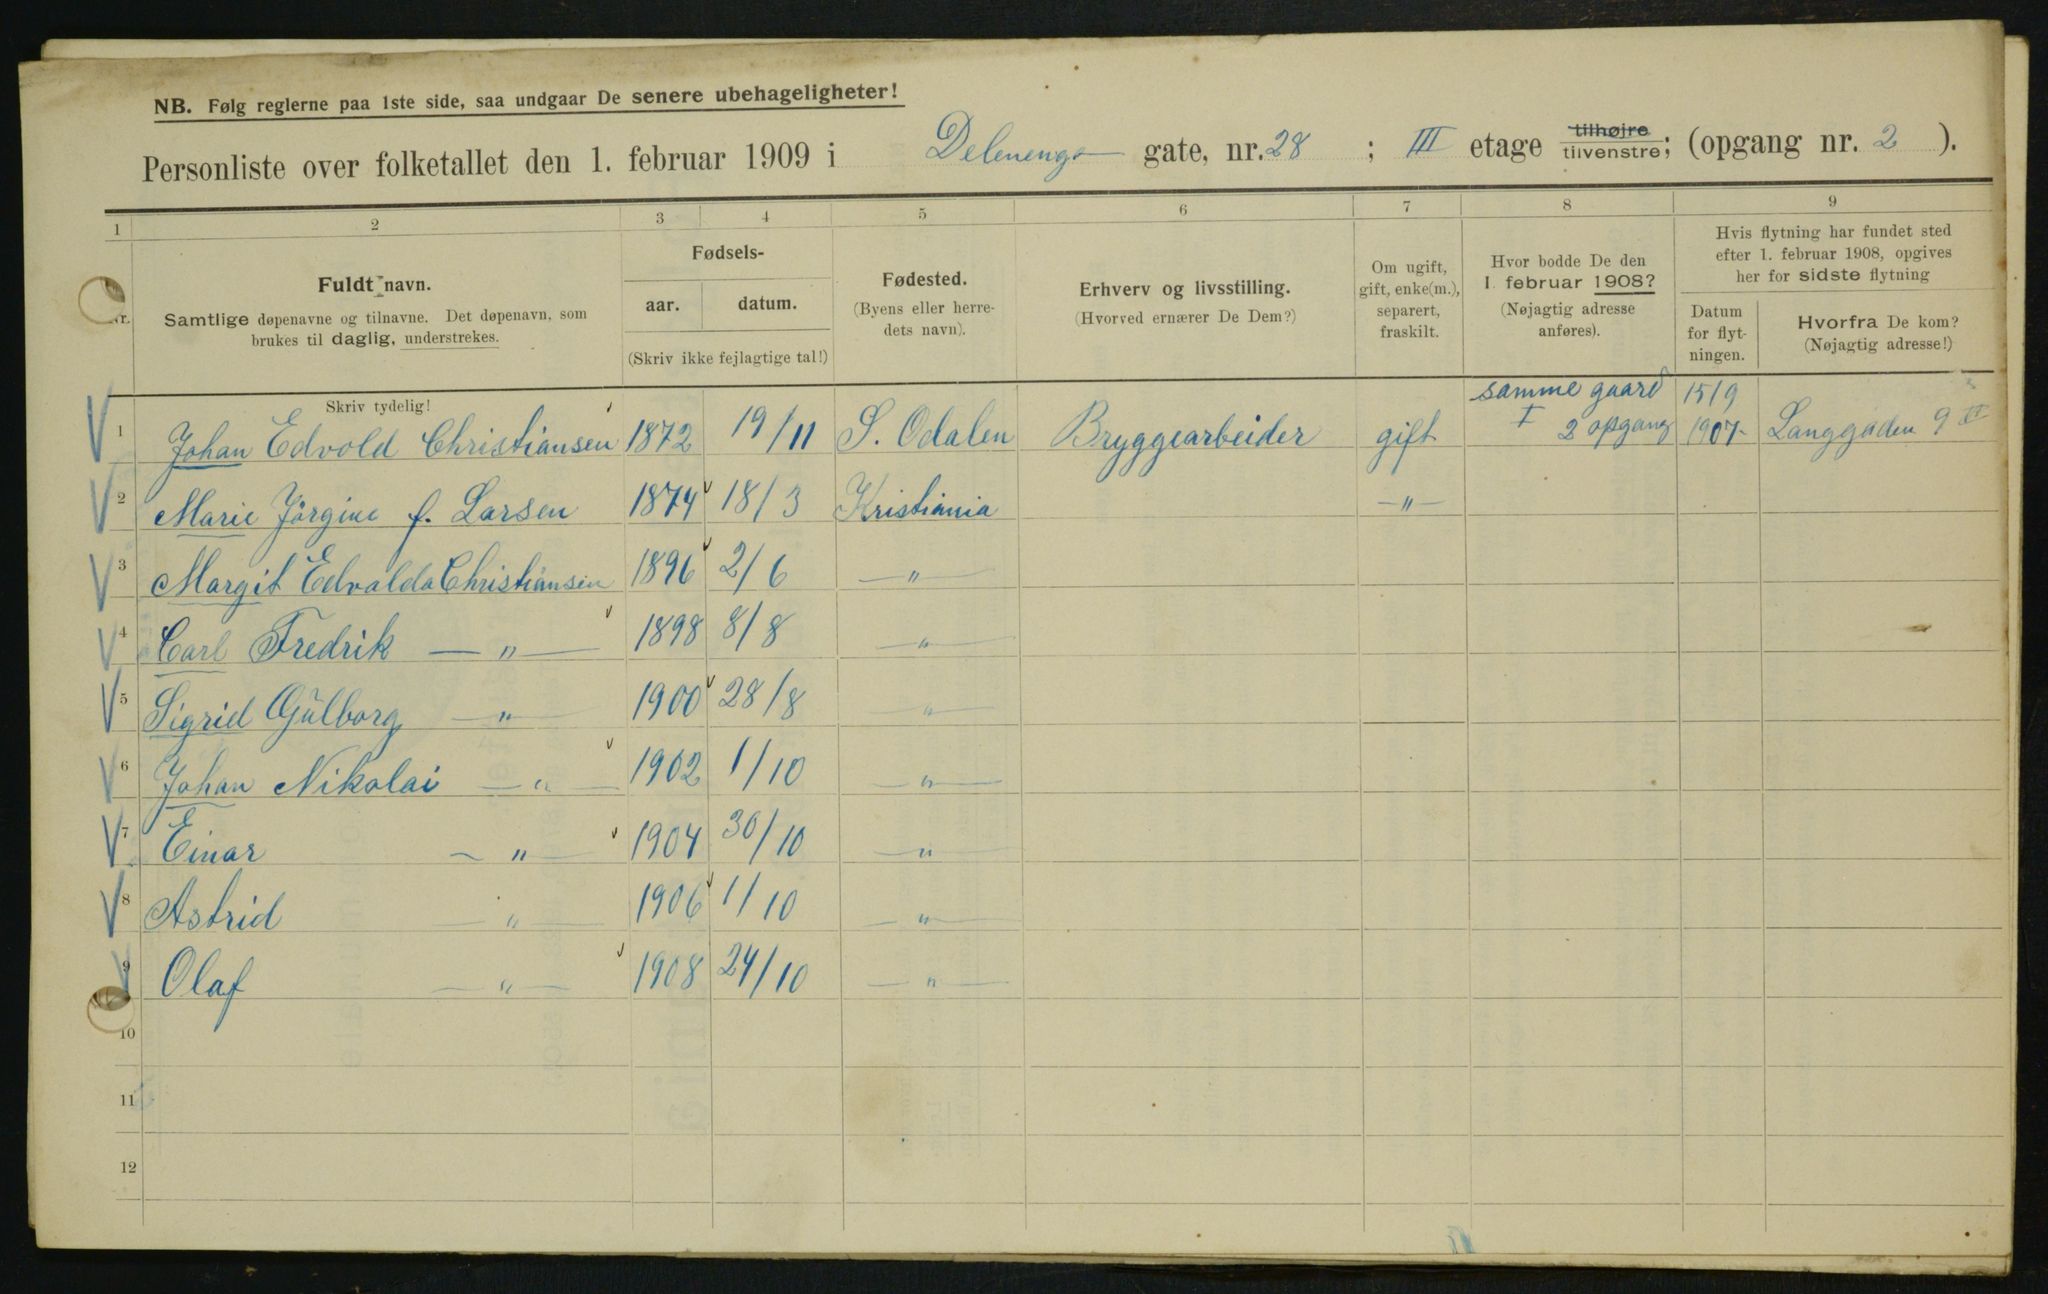 NB. Følg reglerne paa 1ste side, saa undgaar De senere ubehageligheter!
Personliste over folketallet den 1. februar 1909 i Delenenga gate, nr. 28 ; III etage tilhøjre tilvenstre; (opgang nr. 2 ).
1 2 3 4 5 6 7 8 9
Nr.
Fuldt navn.
Samtlige døpenavne og tilnavne. Det døpenavn, som
brukes til daglig, understrekes.
Skriv tydelig!
Fødsels-
aar. datum.
(Skriv ikke fejlagtige tal!)
Fødested.
(Byens eller herre-
dets navn).
Erhverv og livsstilling.
(Hvorved ernærer De Dem?)
Om ugift,
gift, enke(m.),
separert,
fraskilt.
Hvor bodde De den
1. februar 1908?
(Nøjagtig adresse
anføres).
Hvis flytning har fundet sted
efter 1. februar 1908, opgives
her for sidste flytning
Datum
for flyt-
ningen.
Hvorfra De kom?
(Nøjagtig adresse!)
1 Johan Edvold Christiansen 1872 19/11 S. Odalen Bryggearbeider gift samme gaard I 2 opgang 15/9 1907- Langgaden 9 II
2 Marie Jörgine f. Larsen 1874 18/3 Kristiania -"-
3 Margit Edvalda Christiansen 1896 2/6 -"-
4 Carl Fredrik -"- 1898 8/8 -"-
5 Sigrid Gülborg -"- 1900 28/8 -"-
6 Johan Nikolai -"- 1902 1/10 -"-
7 Einar -"- 1904 30/10 -"-
8 Astrid -"- 1906 1/10 -"-
9 Olaf -"- 1908 24/10 -"-
10
11
12